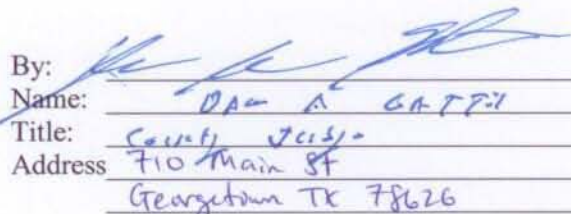 By:
Name: Dan A GATTIS
Title: County Judge
Address 710 Main St
Georgetown TX 78626